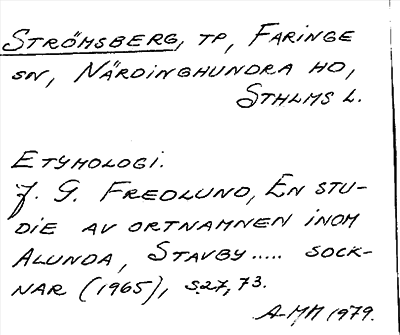 STRÖMSBERG, TP, FARINGE
SN, NÄRDINGHUNDRA HD,
STHLMS L.
ETYMOLOGI.
J. G. FREDLUND, EN STU-
DIE AV ORTNAMNEN INOM
ALUNDA, STAVBY..... SOCK-
NAR (1965), S.27, 73.
A-MH 1979.